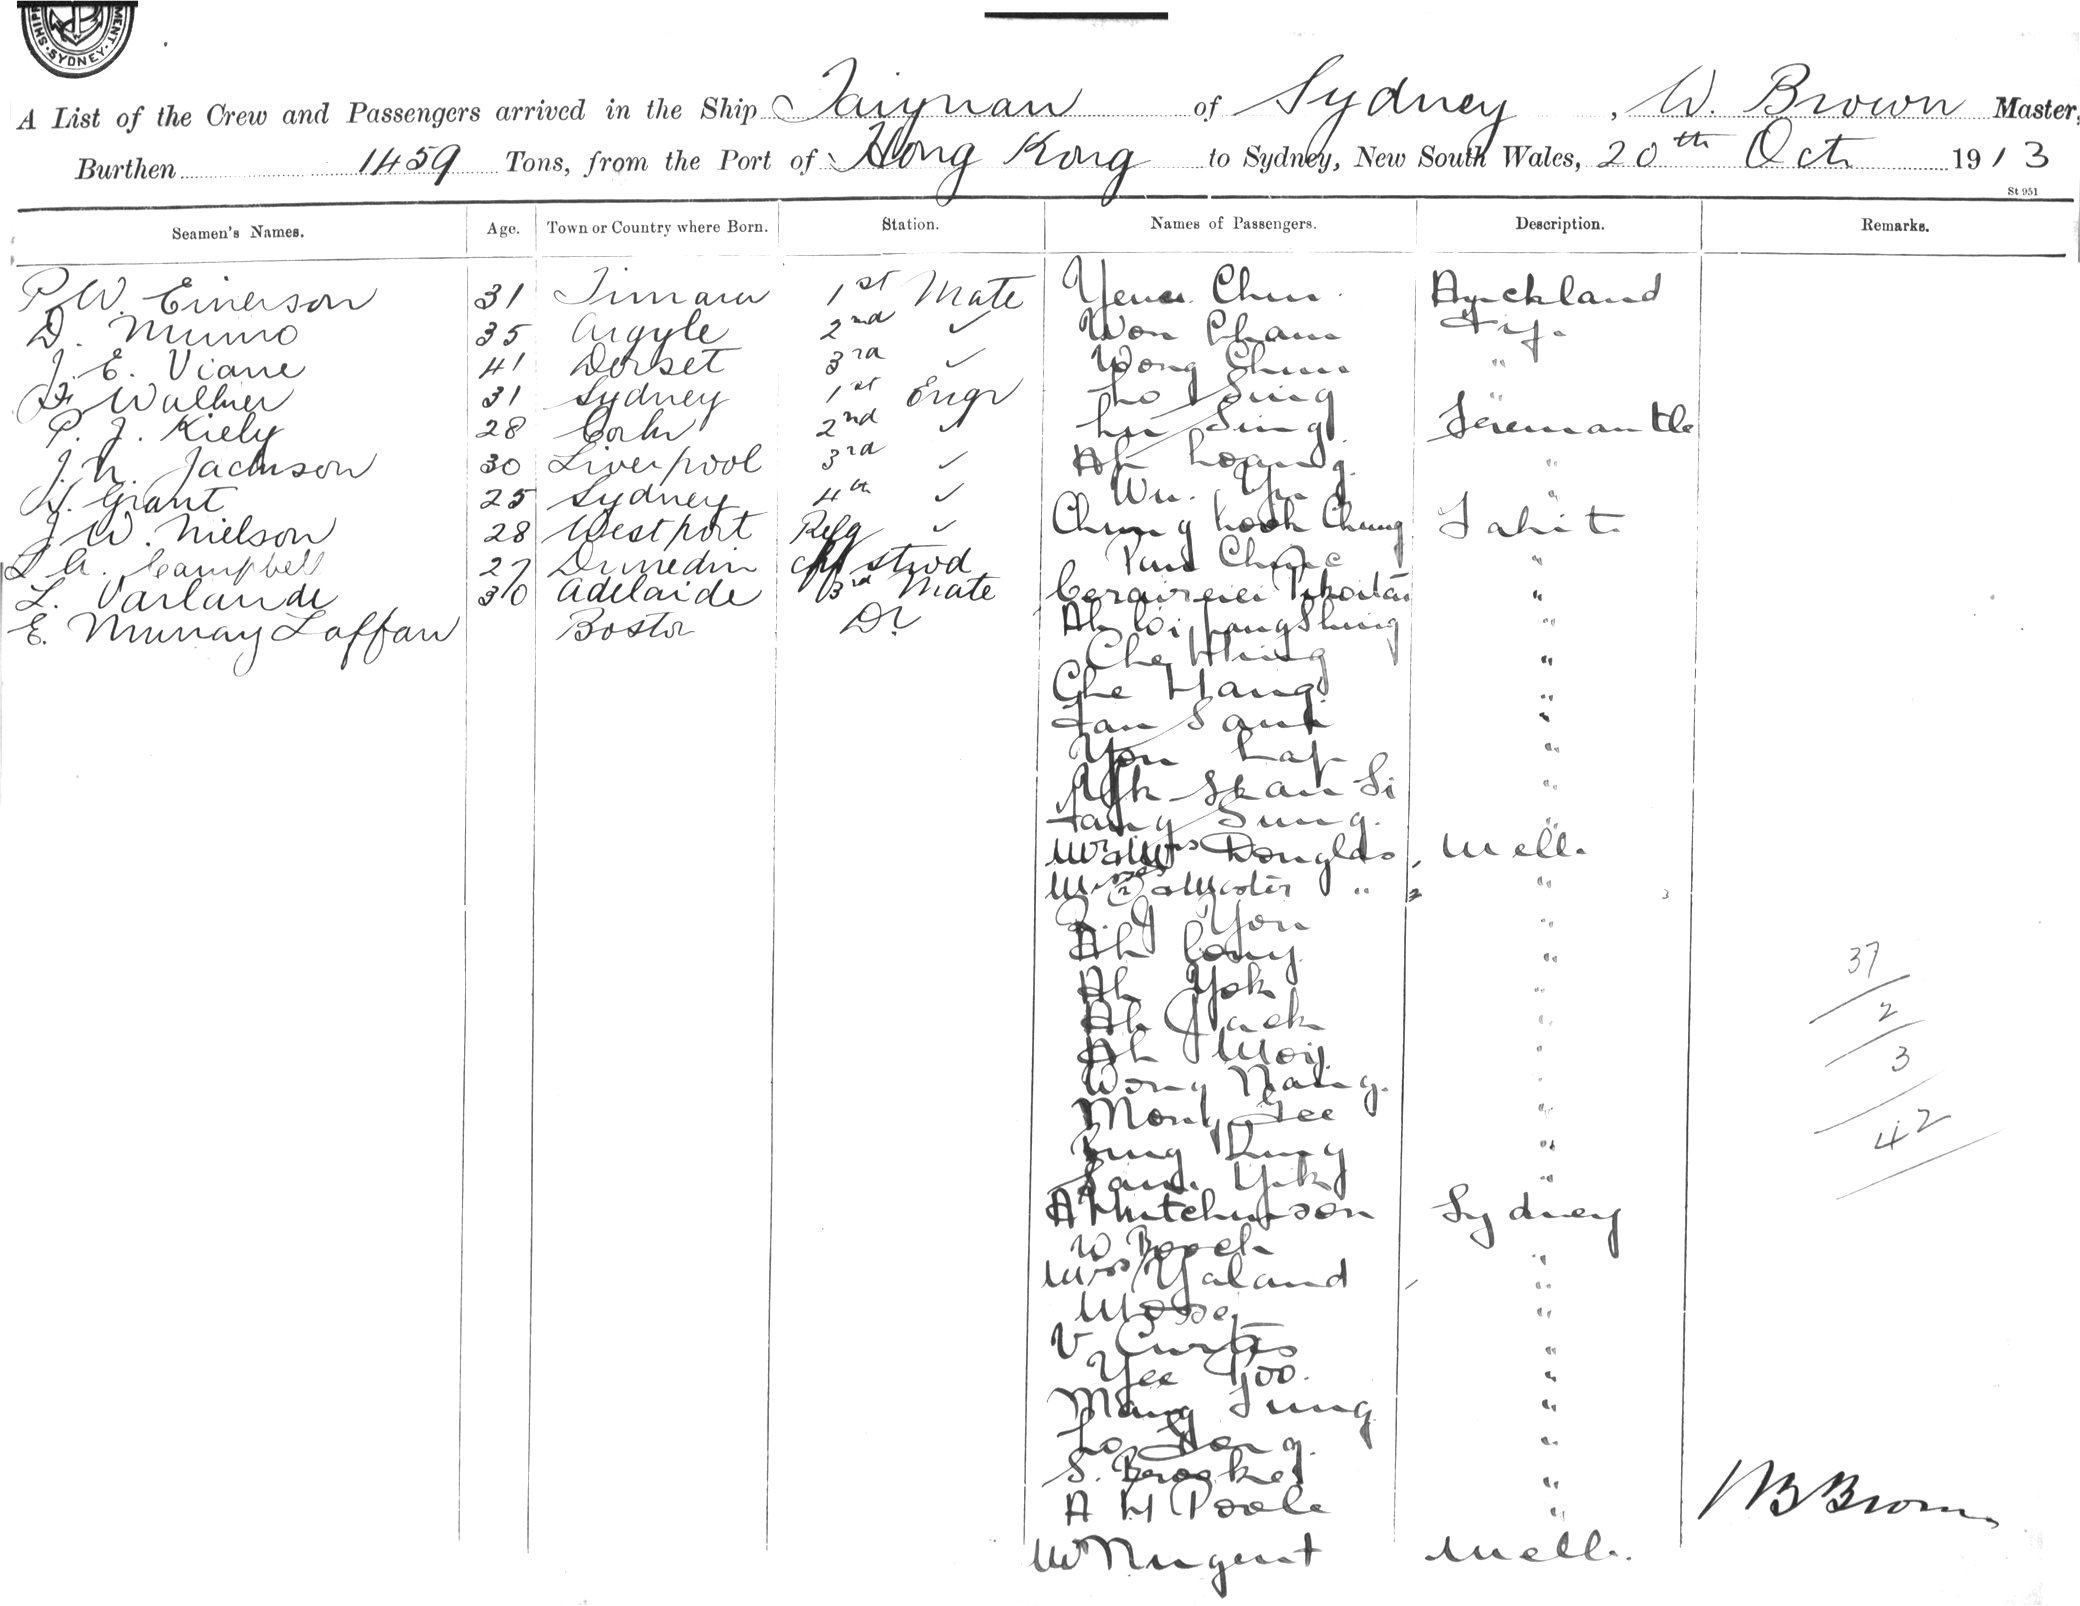 SHIP MENT. SYDNEY
A List of the Crew and Passengers arrived in the Ship Taiyuan of Sydney, W. Brown Master,
Burthen 1459 Tons, from the Port of Hong Kong to Sydney, New South Wales, 20th Oct 1913
St 951
Seamen's Names. Age. Town or Country where Born. Station. Names of Passengers. Description. Remarks.
P. W. Emerson 31 Timaru 1st Mate Chun Auckland
D. Munro 35 Argyle 2nd ✓ Won Cham Fiji
J. E. Viane 41 Dorset 3rd ✓ Wong Chun "
Wallner 31 Sydney 1st Engr Lo Sing "
P. J. Kiely 28 Cork 2nd ✓ Lu Sing Freemantle
J. N. Jackson 30 Liverpool 3rd ✓ Ah Loang "
Grant 25 Sydney 4th ✓ Wu. "
J. W. Nielson 28 Westport Refg ✓ Chung Kook Chung Tahiti
Campbell 27 Dunedin Ch stwd "
L. Varlande 30 Adelaide 3rd Mate "
E. Murray Laffan Boston Dr "
Che Hing "
Che Hang "
Tan Sank "
Yon Lap "
Si "
Tang Sung. "
Mr & Mrs Douglas, Melb.
Misses (2) & Master " "
You "
Ah Cong "
Ah Yok "
Ah Jack "
Ah Moy "
Wong Nang. "
Monk Gee "
"
Yik "
37
2
3
42
A Hutchinson Sydney
W Booch "
Mrs Yaland "
Moss "
V Curtis "
Yee Goo. "
Mang Tung "
Lo Dong. "
S. Brookes "
A H Poole "
W B Brown
W Nugent Melb.